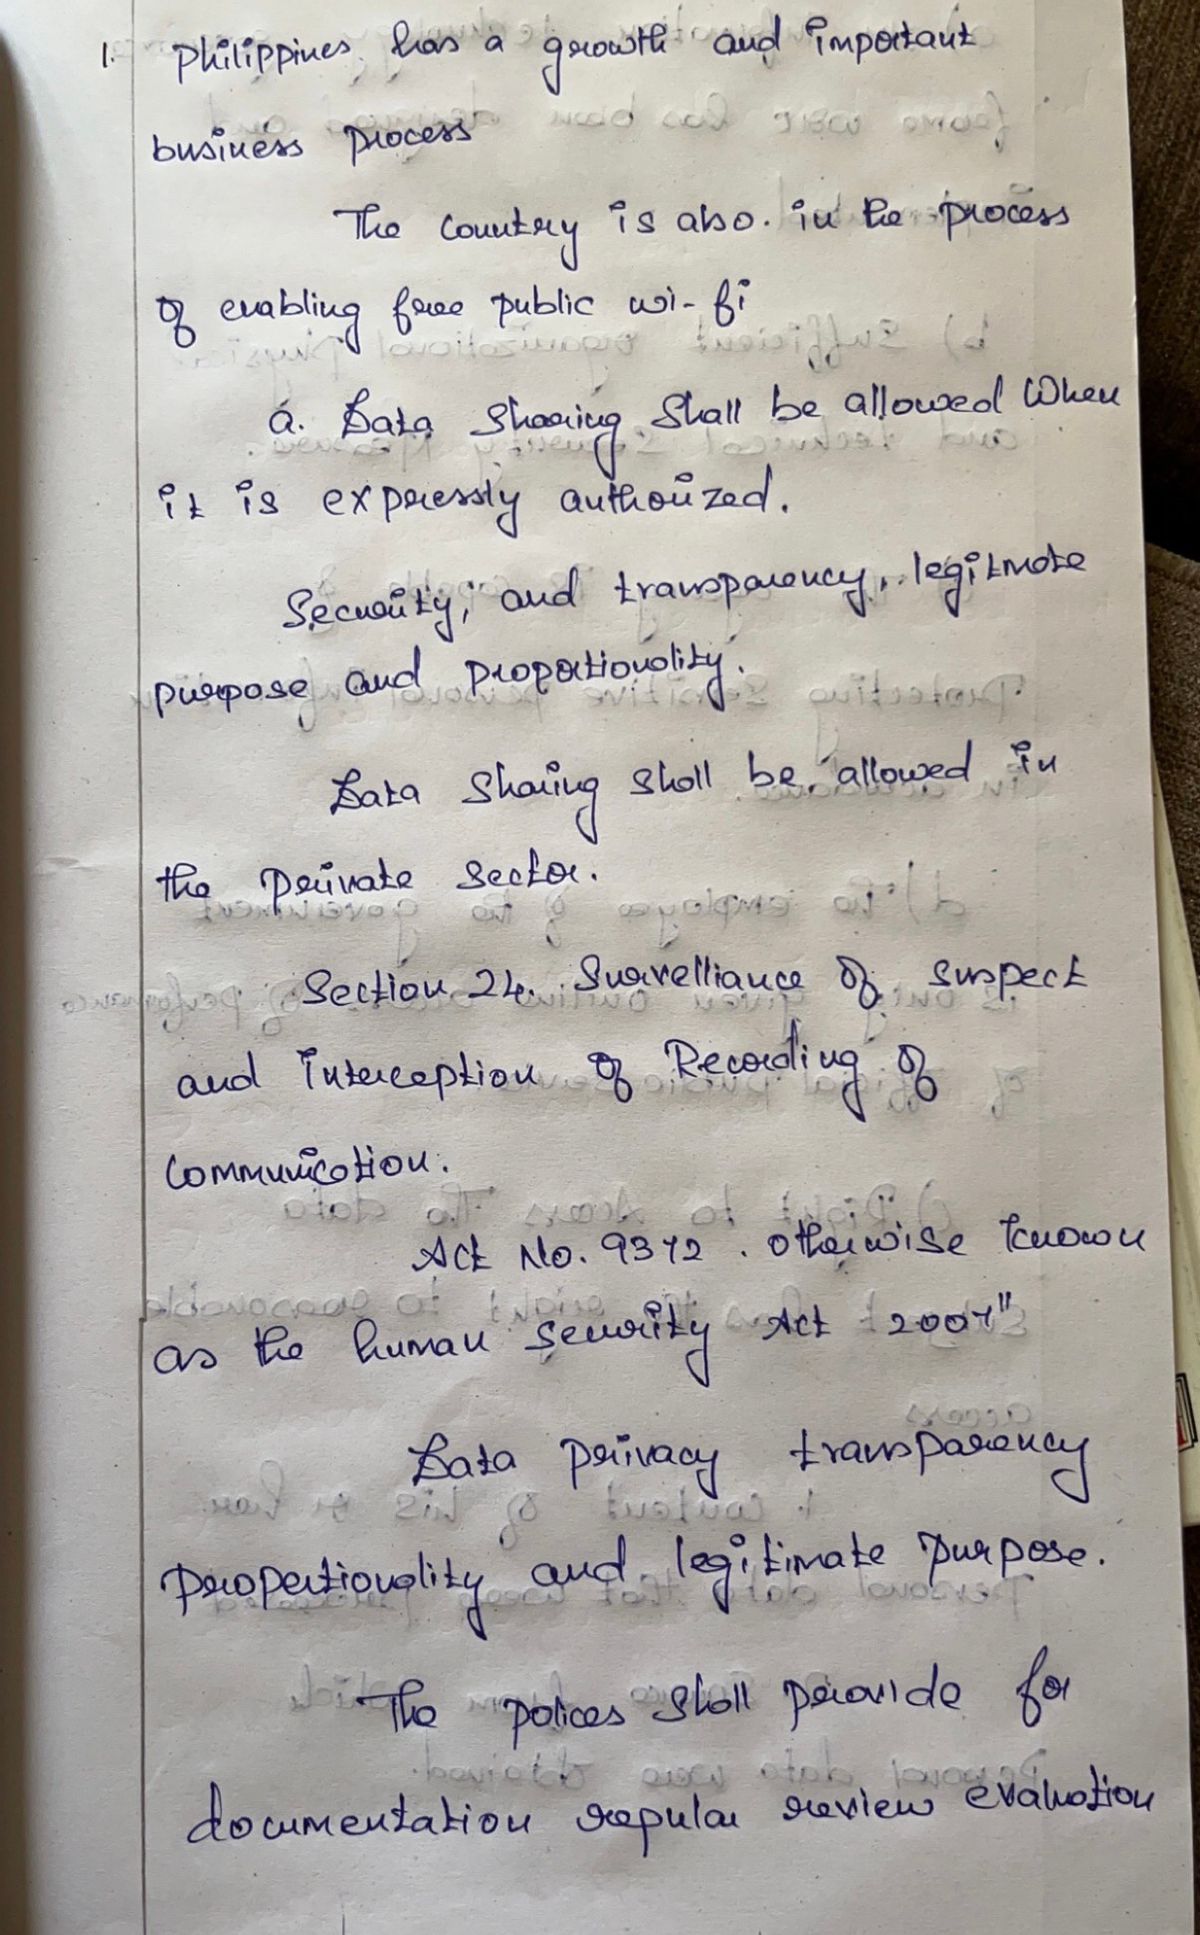 1. Philippines has a growth and important
business process
The country is also. in the process
of enabling free public wi-fi
a. Data Sharing Shall be allowed When
it is expressly authorized.
Security, and transparency, legitmate
purpose and proportionality.
Data Sharing shall be allowed in
the private sector.
Section 24. Survelliance of suspect
and interception of Recording of
communication.
Act No. 9372. otherwise known
as the human security Act 2007"
Data privacy transparency
propertionality and legitimate purpose.
The polices shall provide for
documentation repular review evaluation